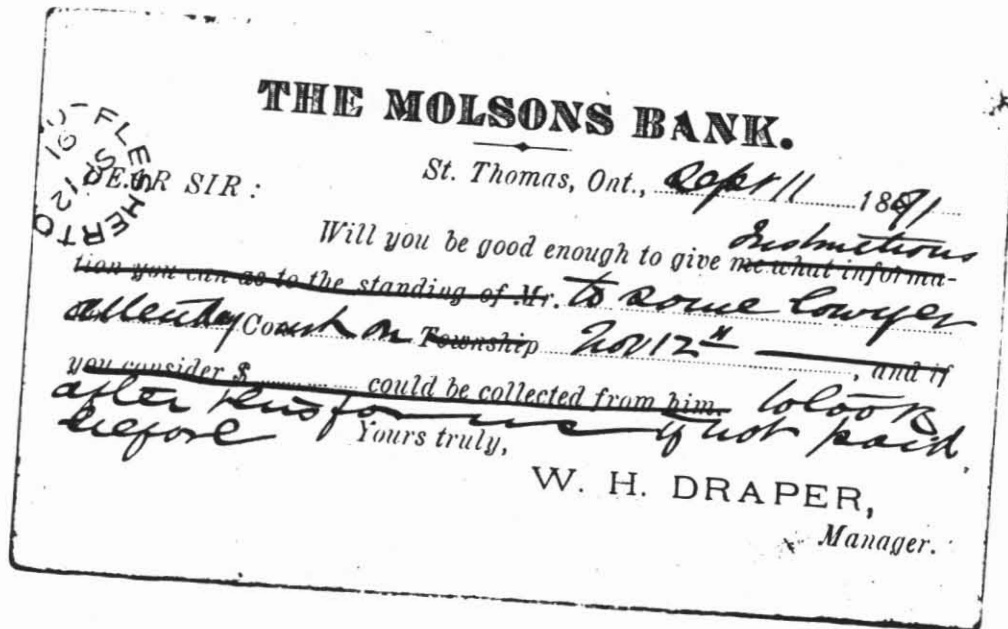 THE MOLSONS BANK.
FLESHERTO
SP 12
91
St. Thomas, Ont., Sept 11 1891
DEAR SIR:
Instructions
Will you be good enough to give me what informa-
tion you can as to the standing of Mr. to some lawyer
attending Court on Township Nov 12th, and if
you consider $ could be collected from him. to look
after this for me if not paid
before
Yours truly,
W. H. DRAPER,
Manager.